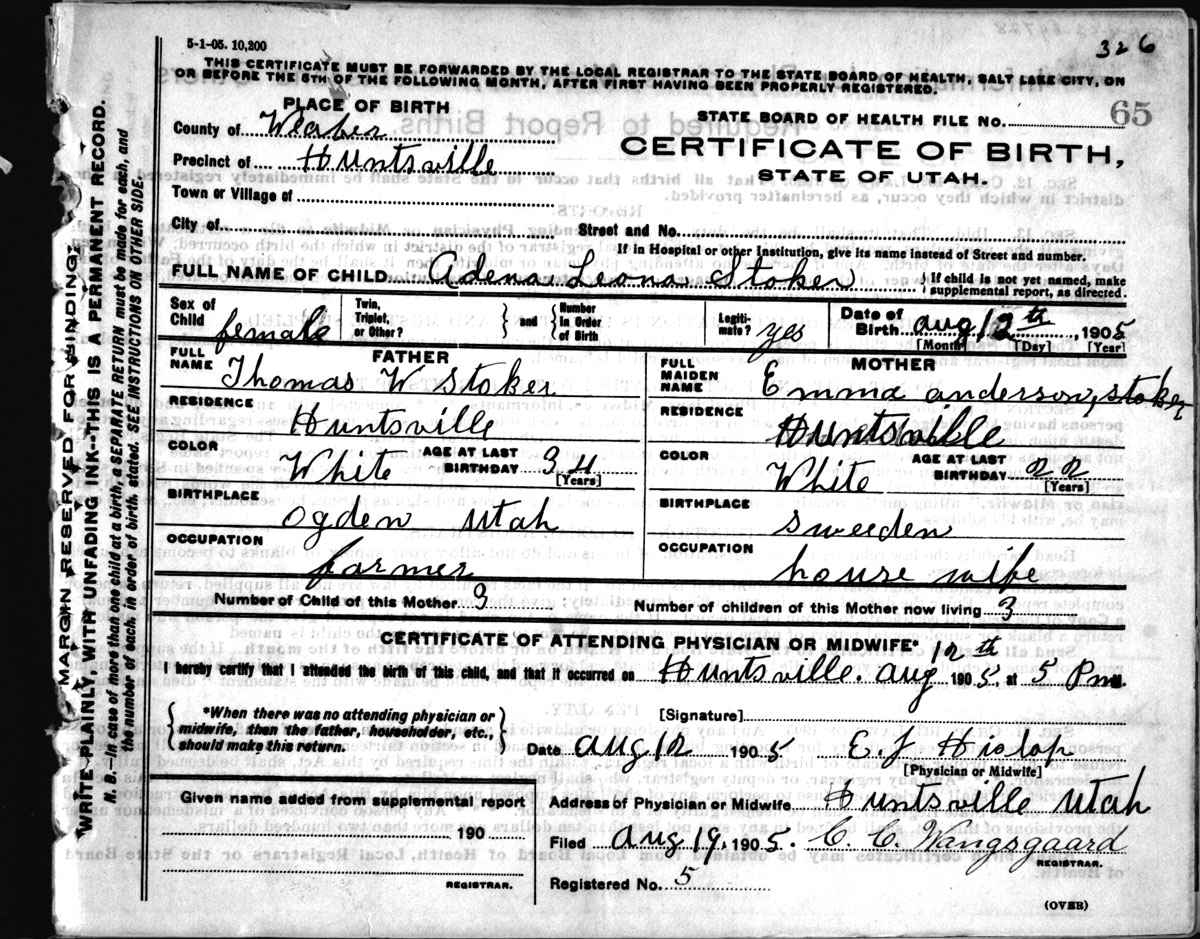 5-1-05. 10,200
326
THIS CERTIFICATE MUST BE FORWARDED BY THE LOCAL REGISTRAR TO THE STATE BOARD OF HEALTH, SALT LAKE CITY, ON
OR BEFORE THE 5TH OF THE FOLLOWING MONTH, AFTER FIRST HAVING BEEN PROPERLY REGISTERED.
65
MARGIN RESERVED FOR BINDING.
WRITE PLAINLY, WITH UNFADING INK--THIS IS A PERMANENT RECORD.
N. B. In case of more than one child at a birth, a SEPARATE RETURN must be made for each, and
the number of each, in order of birth, stated. SEE INSTRUCTIONS ON OTHER SIDE.
PLACE OF BIRTH
County of Weaber
Precinct of Huntsville
Town or Village of
STATE BOARD OF HEALTH FILE NO.
CERTIFICATE OF BIRTH,
STATE OF UTAH.
City of Street and No.
If in Hospital or other Institution, give its name instead of Street and number.
FULL NAME OF CHILD Adena Leona Stoker { If child is not yet named, make supplemental report, as directed.
Sex of Child female Twin, Triplet, or Other? } and { Number in Order of Birth Legitimate? yes Date of Birth aug 12th, 1905
[Month] [Day] [Year]
FATHER
FULL NAME Thomas W Stoker
RESIDENCE
Huntsville
COLOR White AGE AT LAST BIRTHDAY 34
[Years]
BIRTHPLACE
Ogden Utah
OCCUPATION
farmer
MOTHER
FULL MAIDEN NAME Emma anderson, stoker
RESIDENCE
Huntsville
COLOR White AGE AT LAST BIRTHDAY 22
[Years]
BIRTHPLACE
sweeden
OCCUPATION
house wife
Number of Child of this Mother 3 Number of children of this Mother now living 3
CERTIFICATE OF ATTENDING PHYSICIAN OR MIDWIFE.*
I hereby certify that I attended the birth of this child, and that it occurred on Huntsville. aug 12th 1905 at 5 Pm.
{ *When there was no attending physician or midwife, then the father, householder, etc., should make this return. }
[Signature]
Date aug 12 1905 E. J Hislop
[Physician or Midwife]
Given name added from supplemental report
190
REGISTRAR.
Address of Physician or Midwife Huntsville Utah
Filed Aug 19, 1905. C. C. Wangsgaard
REGISTRAR.
Registered No. 5
(OVER)